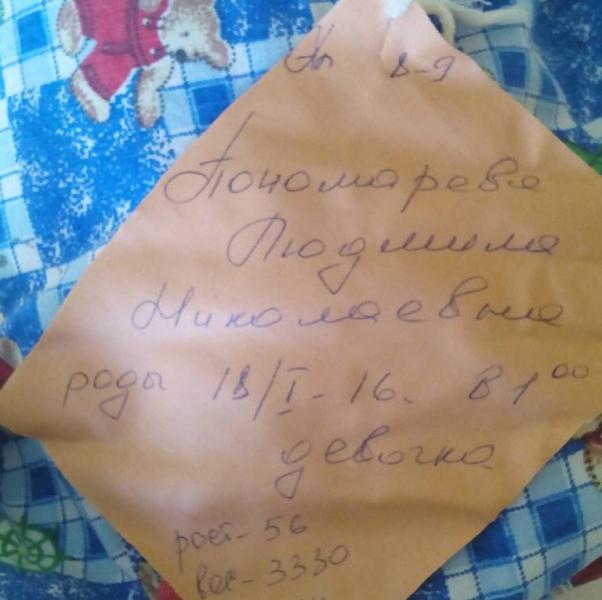 8-9
Пономарева
Людмила
Николаевна
роды 18/I-16. в 1⁰⁰
девочка
рост-56
вес-3330